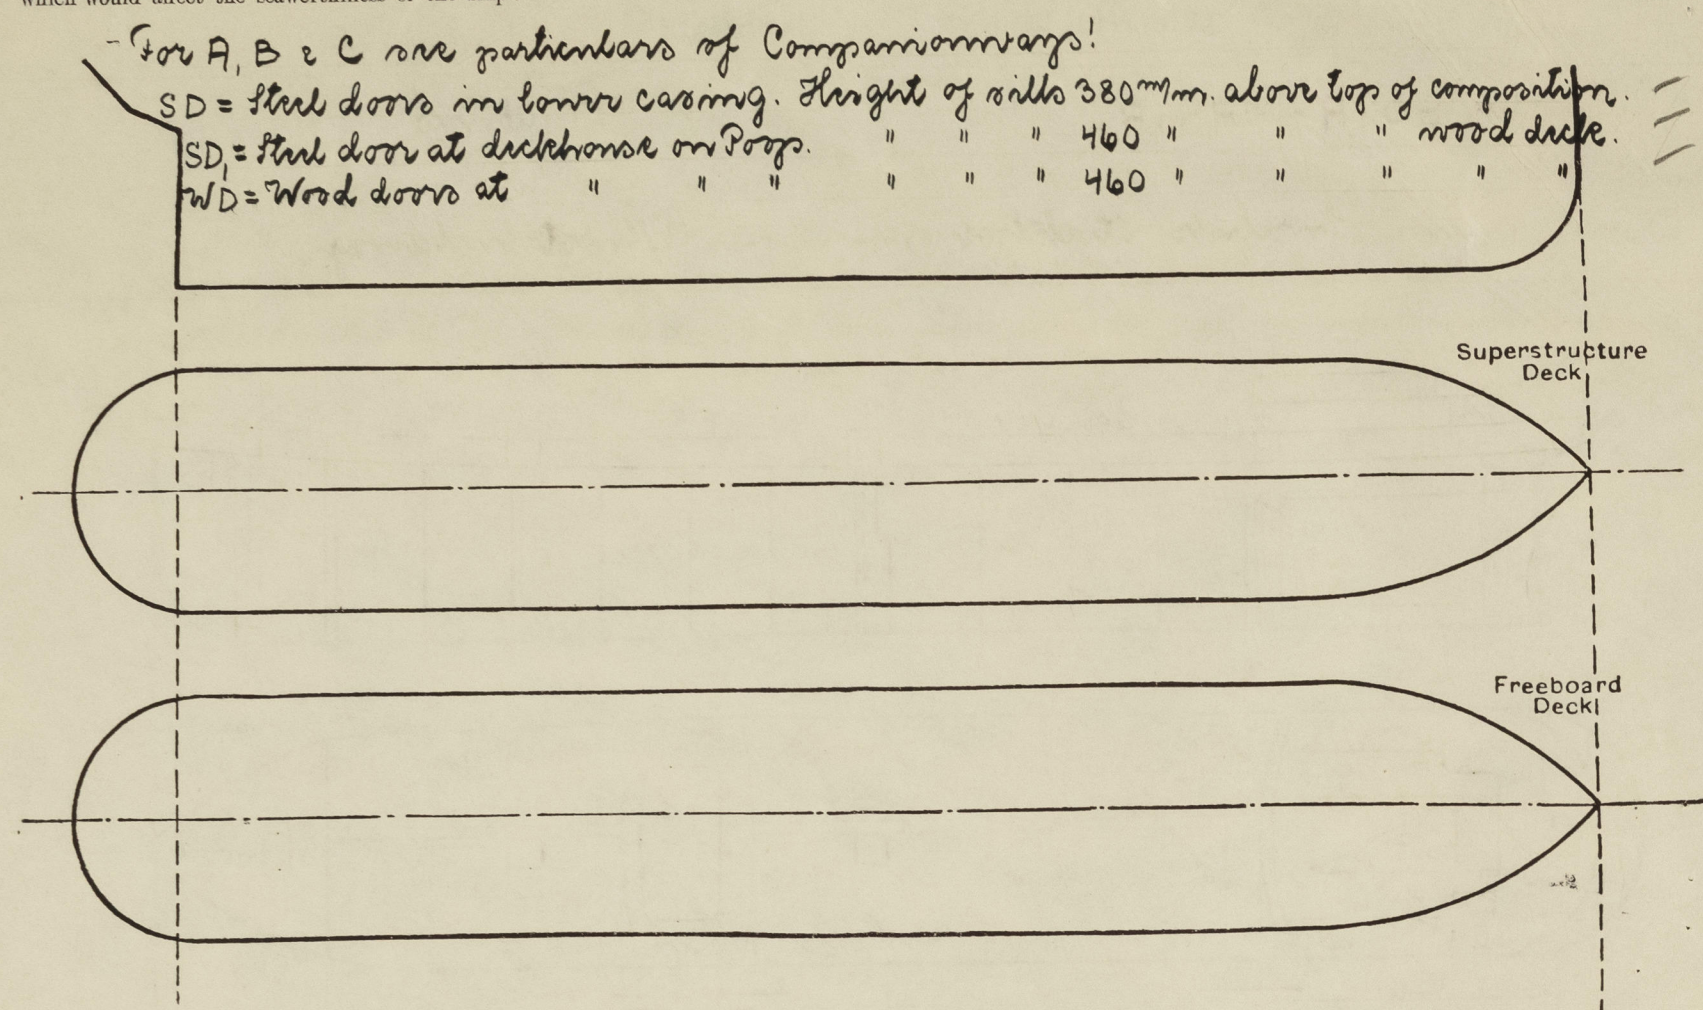 For A, B & C see particulars of Companionways!
SD = Steel doors in lower casing. Height of sills 380 m/m. above top of composition.
SD₁ = Steel door at deckhouse on Poop. " " " 460 " " " wood deck.
WD = Wood doors at " " " " " " 460 " " " " "
Superstructure
Deck
Freeboard
Deck